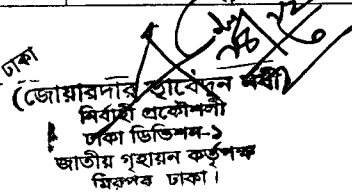 ঢাকা
(জোয়ারদার তাবেদুন নবী)
নির্বাহী প্রকৌশলী
ঢাকা ডিভিশন-১
জাতীয় গৃহায়ন কর্তৃপক্ষ
মিরপুর ঢাকা।